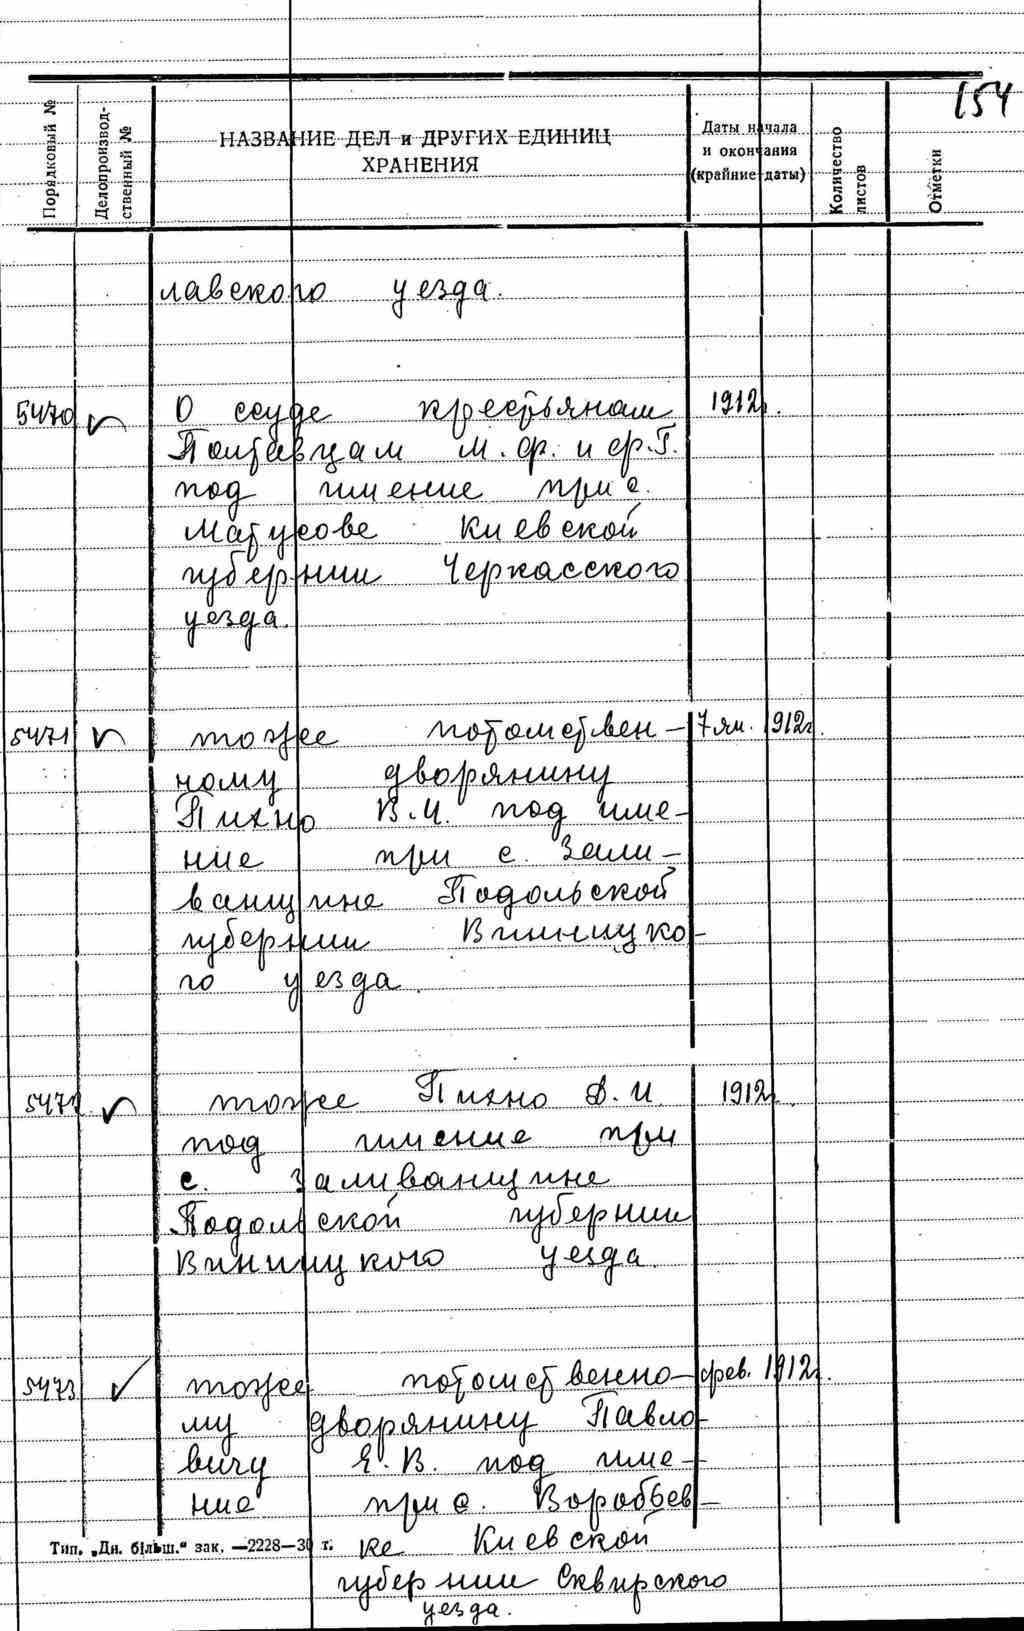 154
Порядковый №
Делопроизвод-
ственный №
НАЗВАНИЕ ДЕЛ и ДРУГИХ ЕДИНИЦ
ХРАНЕНИЯ
Даты начала
и окончания
(крайние даты)
Количество
листов
Отметки
лавского уезда.
5470 О ссуде крестьянам 1912г.
Полтавцам М. Ф. и Ф. Г.
под имение при с.
Матусове Киевской
губернии Черкасского
уезда.
5471 тоже потомствен- 7 ян. 1912г.
ному дворянину
Пихно В. И. под име-
ние при с. Зали-
ванщине Подольской
губернии Винницко-
го уезда.
5472 тоже Пихно Д. И. 1912г.
под имение при
с. Заливанщине
Подольской губернии
Винницкого уезда.
5473 тоже потомственно- фев. 1912г.
му дворянину Павло-
вичу Е. В. под име-
ние при с. Воробьев-
ке Киевской
Тип. „Дн. більш.“ зак. —2228—30 т.
губернии Сквирского
уезда.